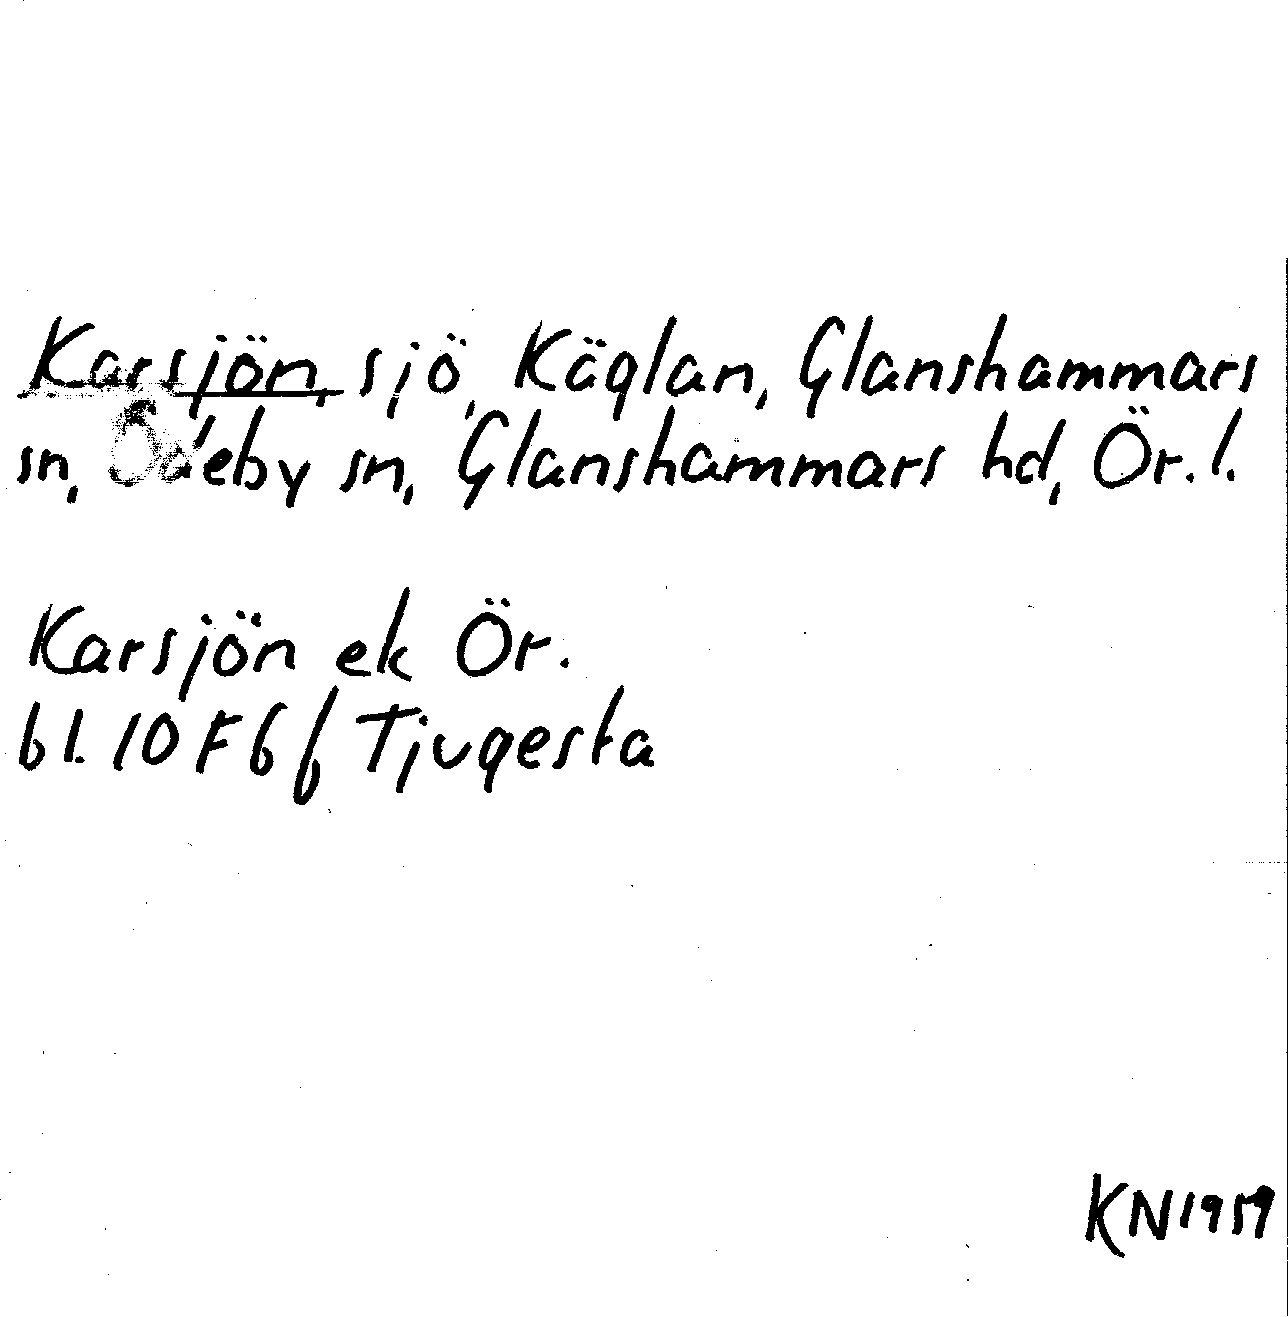 Karsjön, sjö, Käglan, Glanshammars
sn, Ödeby sn, Glanshammars hd, Ör. l.
Karsjön ek Ör.
bl. 10 F 6 f Tjugesta
KN 1959